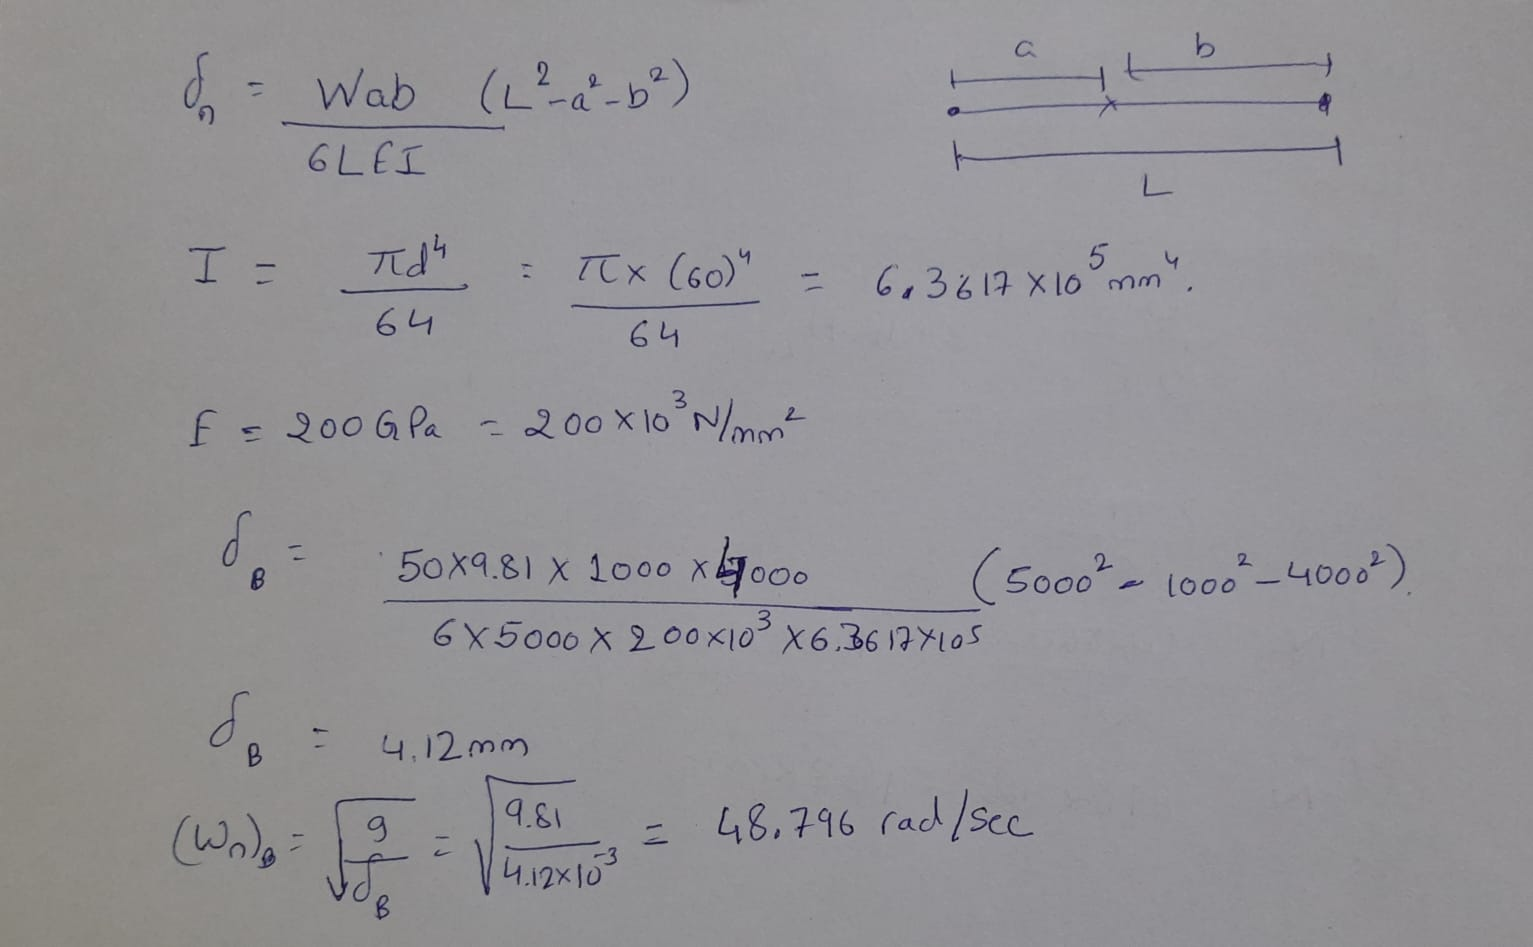 δn = Wab/6LEI (L²-a²-b²)
a b
L
I = πd⁴/64 = π×(60)⁴/64 = 6.3617×10⁵mm⁴.
E = 200GPa = 200×10³N/mm²
δB = 50×9.81×1000×4000/6×5000×200×10³×6.3617×10⁵ (5000²-1000²-4000²).
δB = 4.12mm
(Wn)B = √(g/δB) = √(9.81/4.12×10⁻³) = 48.796 rad/sec